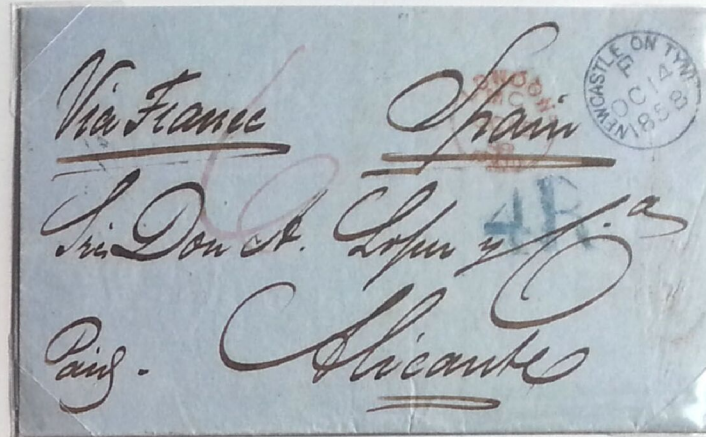 Via France Spain
NEWCASTLE ON TYNE
F
OC 14
1858
6
4R
Sres Don A. Lopez y Ca
Paid. Alicante